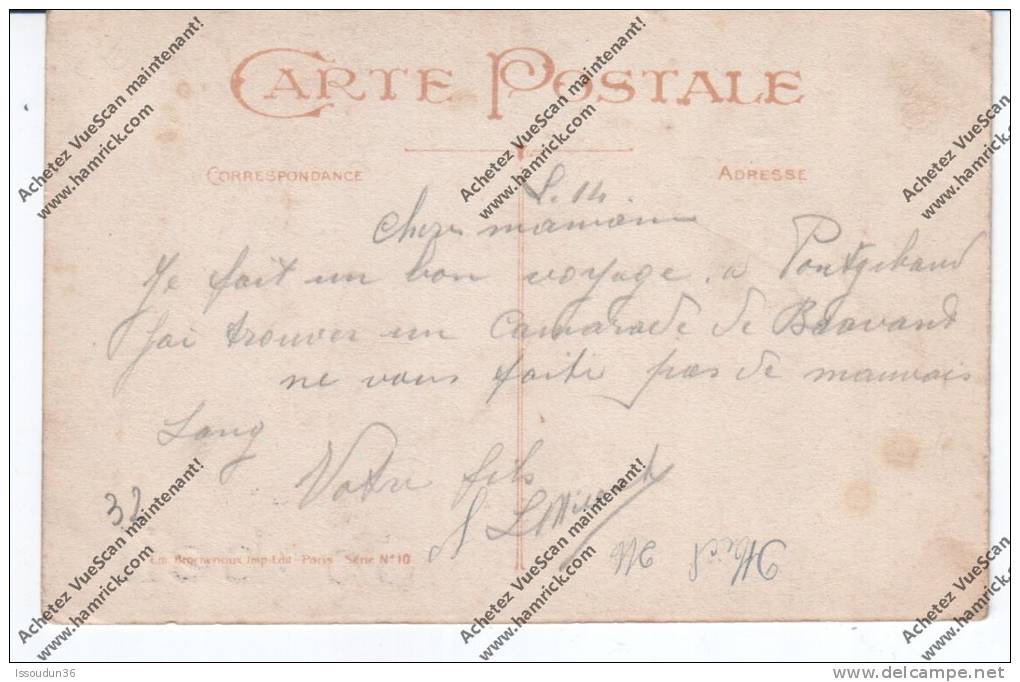 CARTE POSTALE
CORRESPONDANCE
ADRESSE
Chers maman
Je fait un bon voyage. a Pontgibaud
Jai trouver un camarade de
ne vous faite pas de mauvais
Sang
Votre fils
32
Imp-Edit - Paris Série N° 10
Achetez VueScan maintenant!
www.hamrick.com
Achetez VueScan maintenant!
www.hamrick.com
Achetez VueScan maintenant!
www.hamrick.com
Achetez VueScan maintenant!
www.hamrick.com
Achetez VueScan maintenant!
www.hamrick.com
Achetez VueScan maintenant!
www.hamrick.com
Issoudun36
delcampe.net